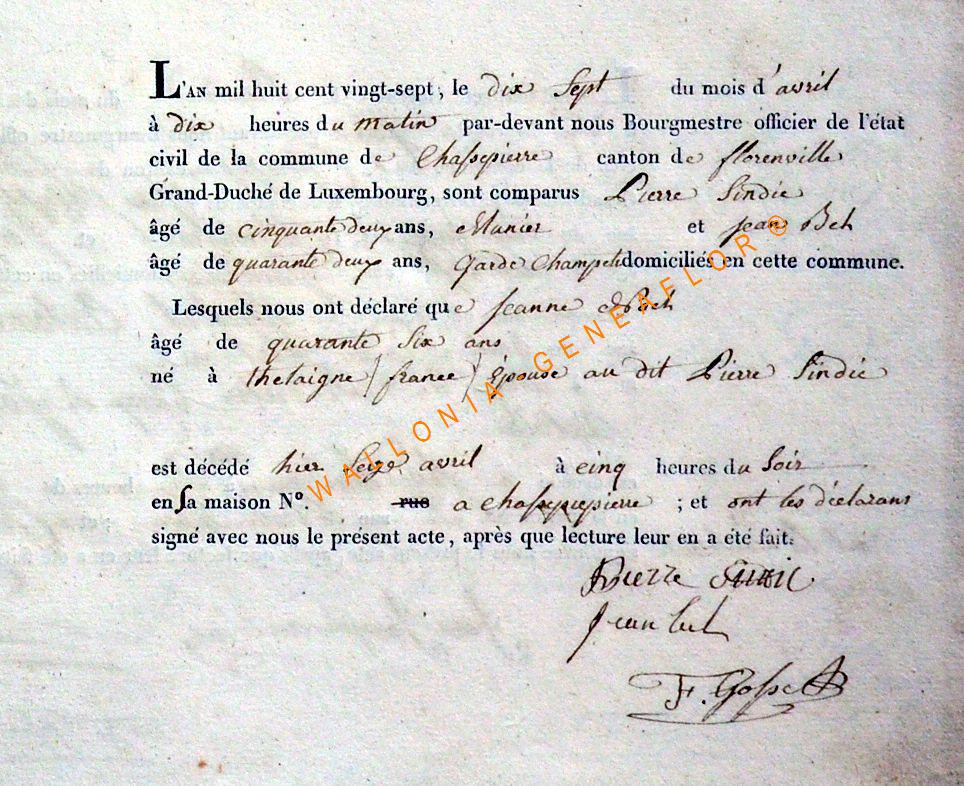 L'AN mil huit cent vingt-sept, le dix sept du mois d'avril
à dix heures du matin par-devant nous Bourgmestre officier de l'état
civil de la commune de Chassepierre canton de florenville
Grand-Duché de Luxembourg, sont comparus Pierre Sindic
âgé de cinquante deux ans, Munier et jean
âgé de quarante deux ans, Garde Champetre domiciliés en cette commune.
Lesquels nous ont déclaré que jeanne
âgé de quarante six ans
né à thelaigne (france) Épouse au dit Pierre Sindic
est décédé hier seize avril à cinq heures du soir
en sa maison N°. rue a chassepierre ; et ont les déclarans
signé avec nous le présent acte, après que lecture leur en a été fait.
Pierre
Jean
F.
WALLONIA GENEAFLOR ®